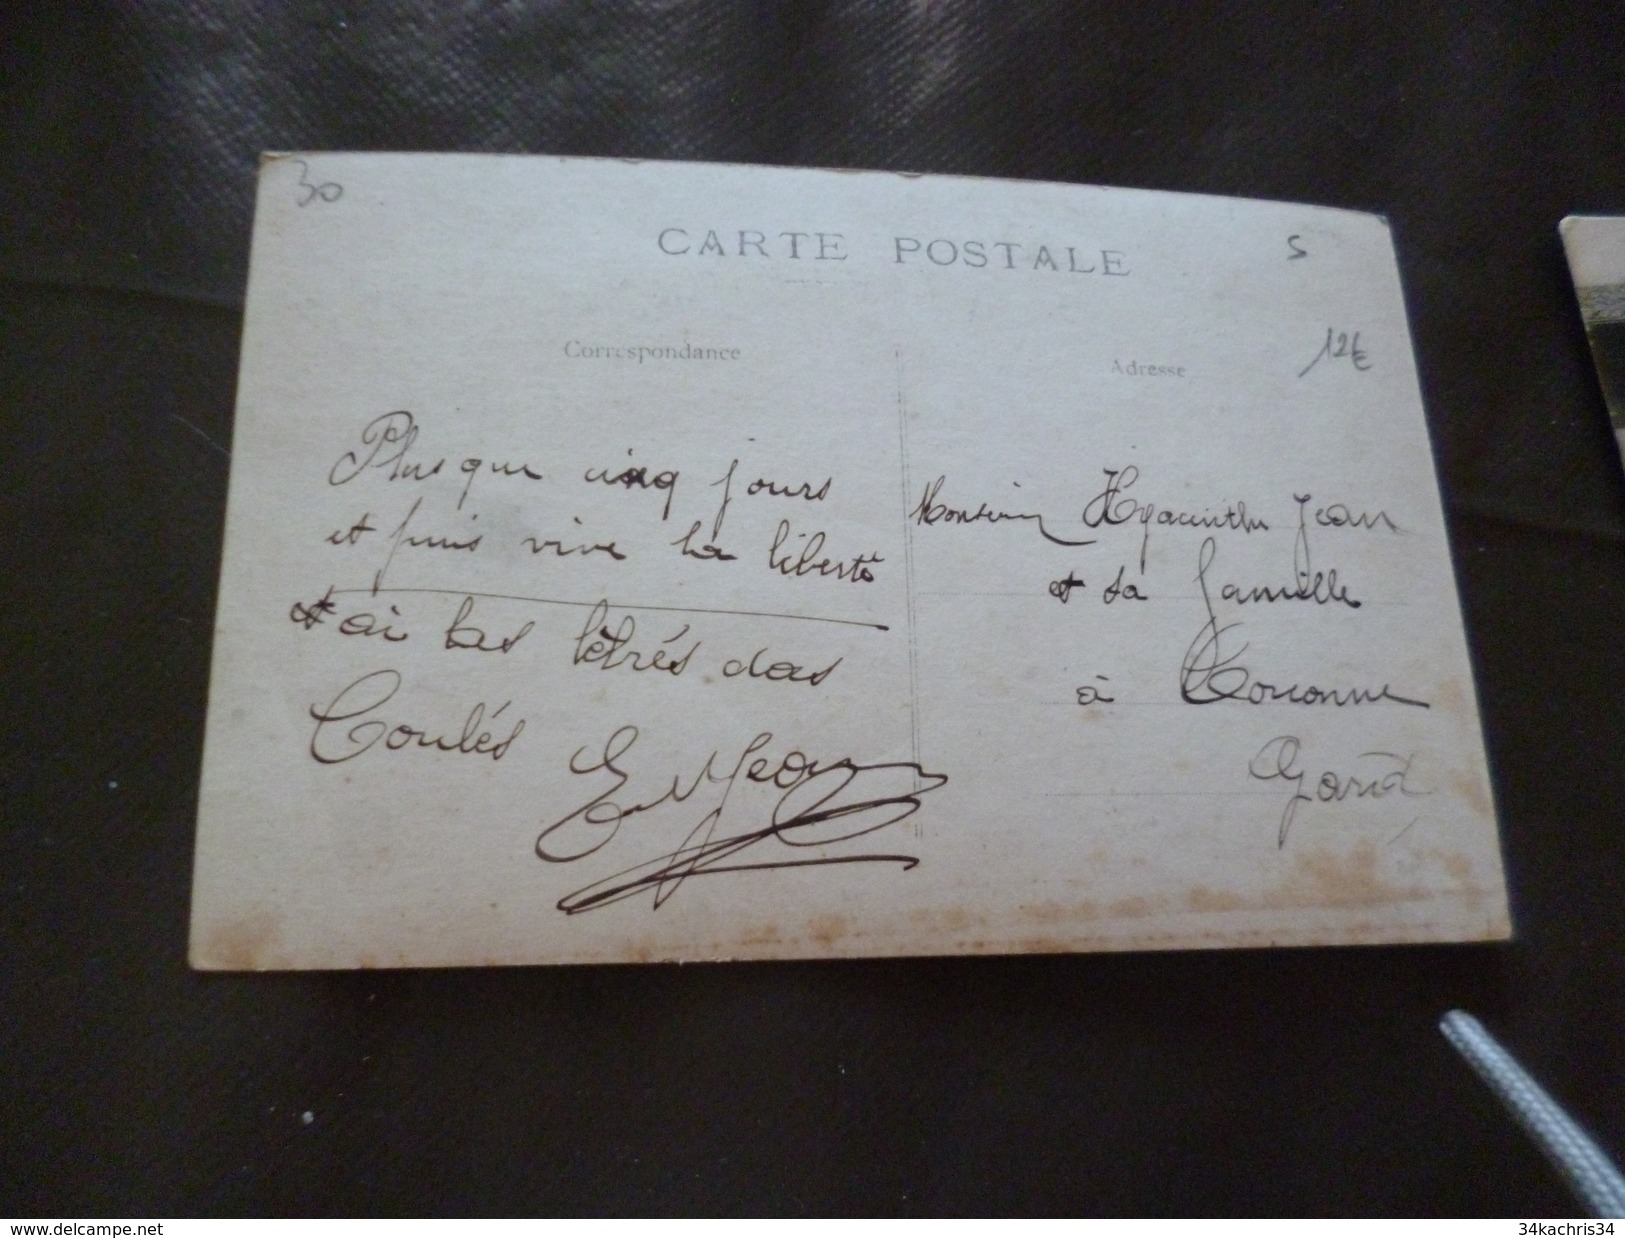 30
CARTE POSTALE
5
Correspondance
Adresse
12€
Plus que cinq jours
et puis vive la liberté
et ai las
das
Monsieur Hyacinthe Jean
et sa famille
à
Gard
E Jean
www.delcampe.net
34kachris34